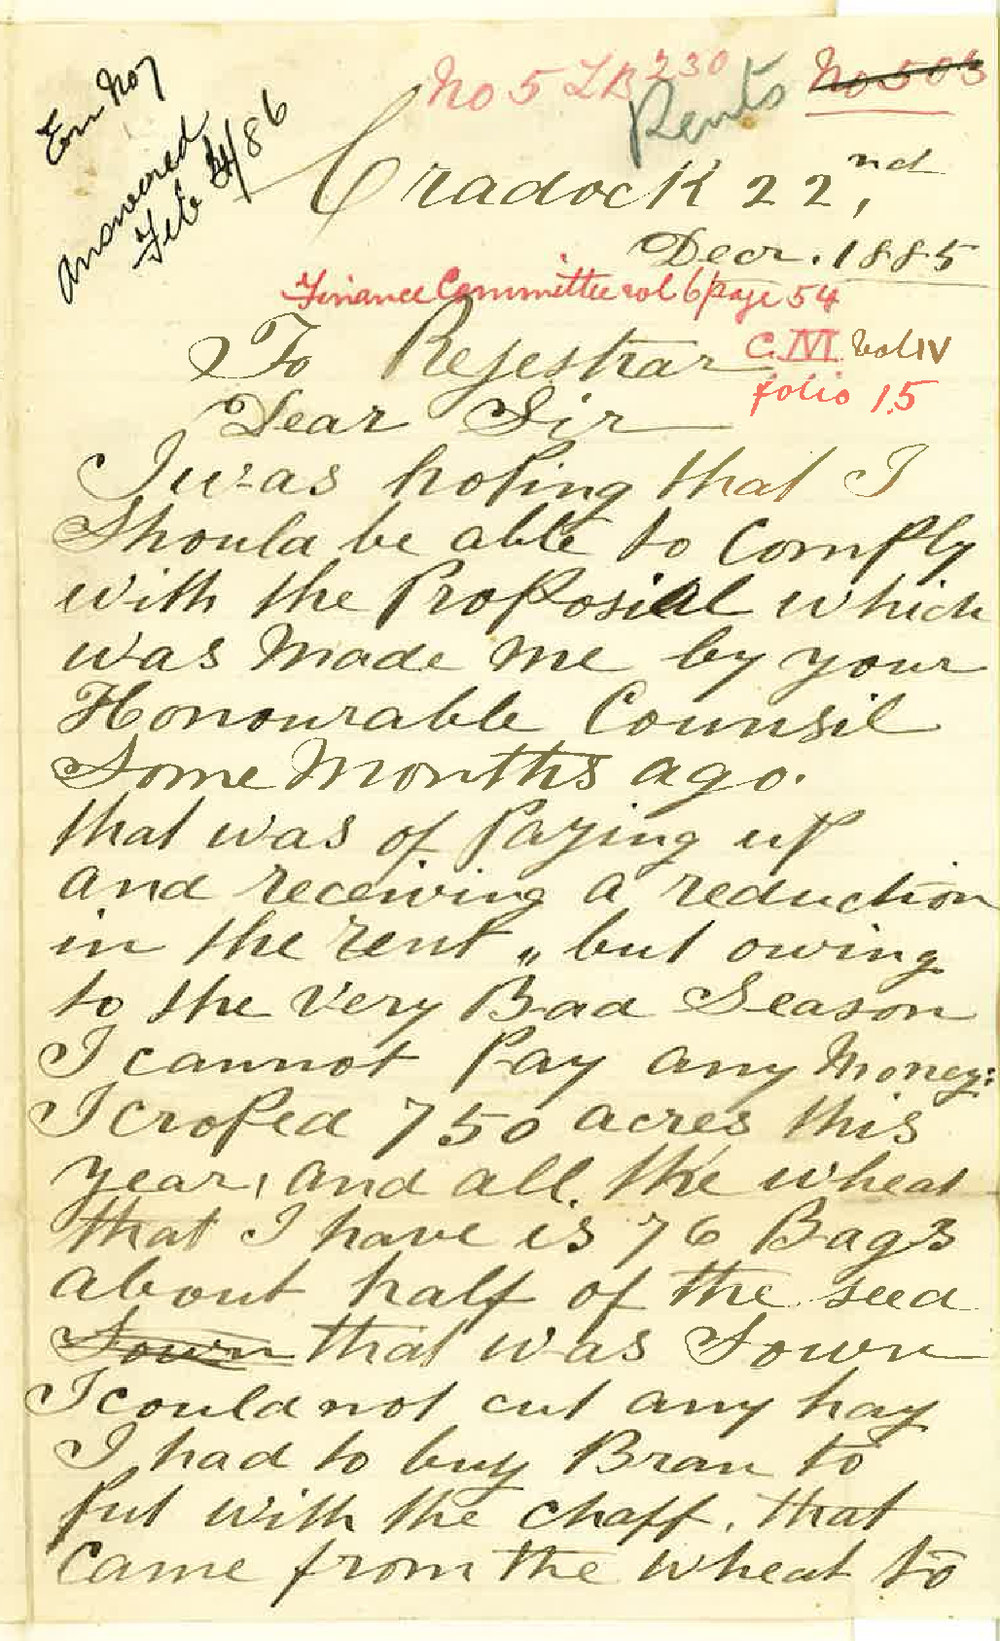 Em No 7
Answered
Feb 4/86
No 5 LB 230
Rents
No 503
Cradock 22,nd
Decr. 1885
Finance Committee vol 6 page 54
To Rejestrar
C.M. Vol IV
folio 15
Dear Sir
I was hoping that I
Should be able to Comply
with the Proposial which
was Made Me by your
Honourable Counsil
Some Months ago.
that was of Paying up
and receiving a reduction
in the rent „ but owing
to the Very Bad Season
I cannot Pay any Money:
I croped 750 acres this
year, and all. the wheat
that I have is 76 Bags
about half of the seed
Sown that was Sown
I could not cut any hay
I had to buy Bran to
put with the chaff. that
Came from the wheat to